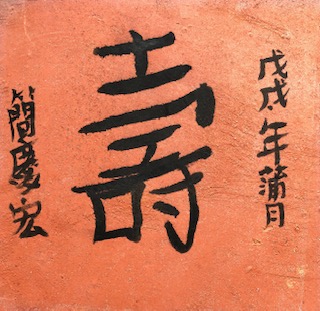 戊戌年蒲月
壽
簡慶宏